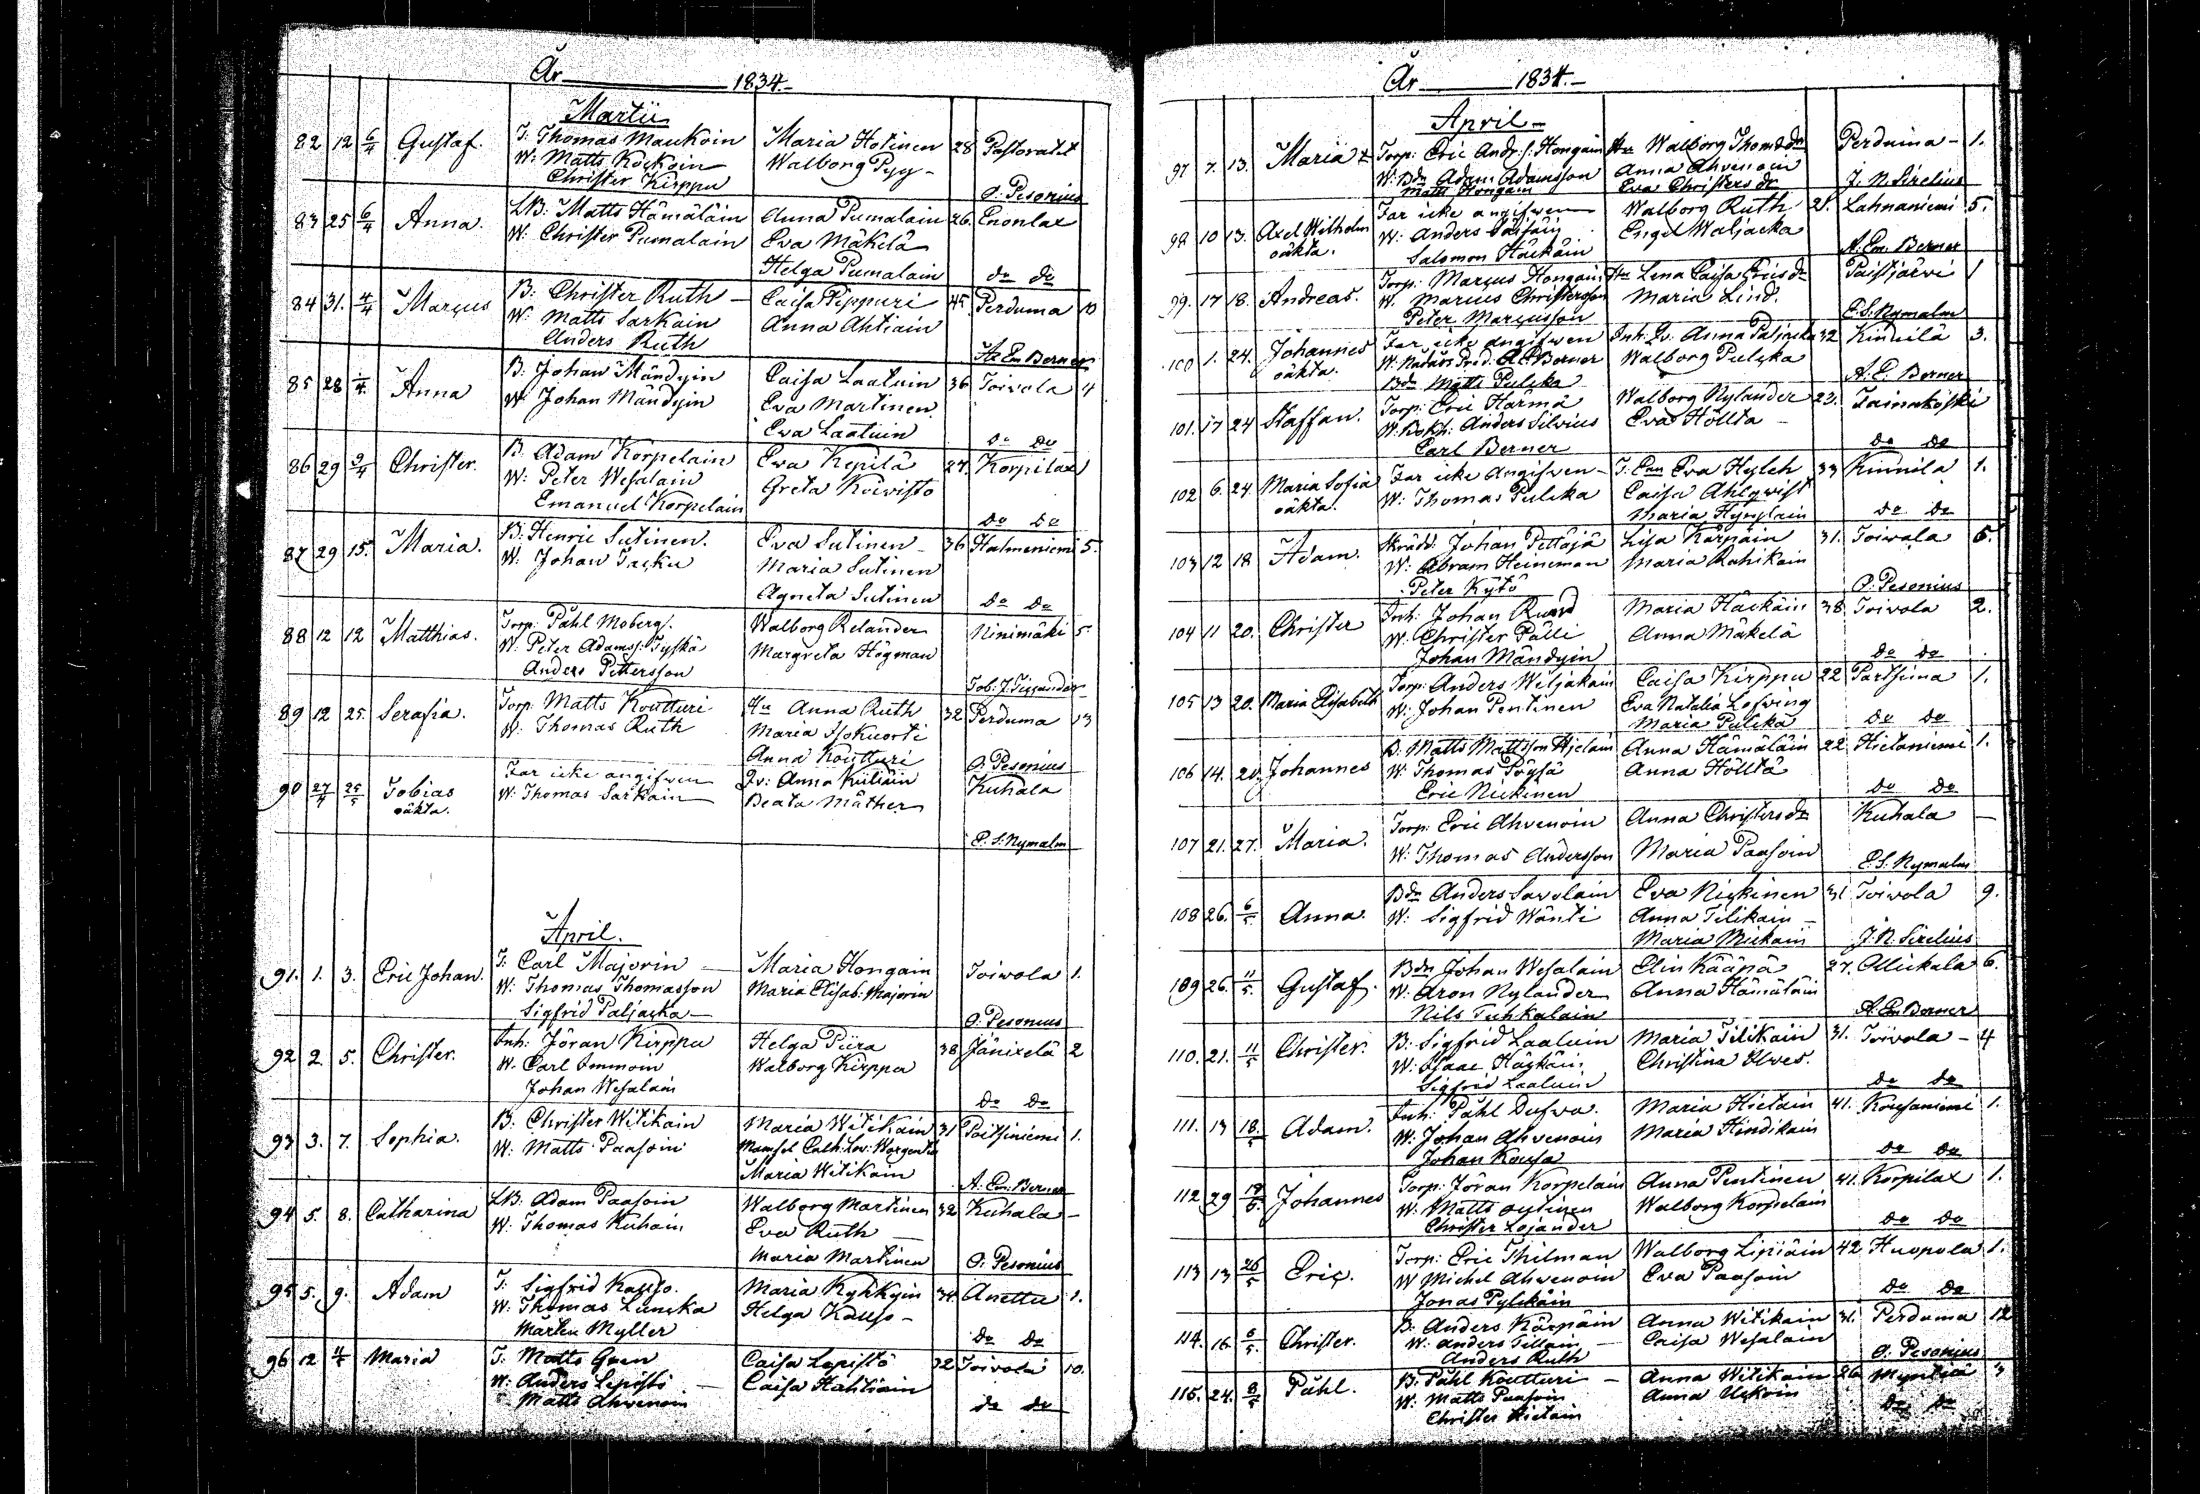 År 1834.
Martii
82 12 6/4 Gustaf. T. Thomas Maukoin Maria Hotinen 28 Pastoratet
W: Matts Kockoin Walborg Pyy
Christer Kirppu O. Pesonius
83 25 6/4 Anna. LB: Matts Hämäläin Anna Pumalain 26. Enonlax
W: Christer Pumalain Eva Mäkelä
Helga Pumalain do do
84 31. 4/4 Marcus B: Christer Ruth Caisa Pippuri 45. Perduma 10
W: Matts Sarkain Anna Ahtiain
Anders Ruth A: Em Berner
85 28 Anna B: Johan Mändyin Caisa Laatuin 36 Toivola 4
W: Johan Mändyin Eva Martinen
Eva Laatuin do do
86 29 Christer. B. Adam Korpelain Eva Kepilä 27. Korpilax
W: Peter Wesalain Greta Koivisto
Emanuel Korpelain do do
87 29 15. Maria. B: Henric Sutinen. Eva Sutinen 36 Halmeniemi 5.
W: Johan Tacku Maria Sutinen
Agneta Sutinen do do
88 12 12 Matthias. Torp: Påhl Moberg. Walborg Relander Ninimäki 5.
W: Peter Adamss: Tyskä Margreta Hogman
Anders Pettersson Tob: J. Tissander
89 12 25. Serafia. Torp: Matts Koutturi Hu Anna Ruth 32 Perduma 13
W: Thomas Ruth Maria Isokuorti
Anna Koutturi O. Pesonius
90 27/4 25/5 Tobias Far icke angifven Qv: Anna Kiiliäin Kuhala
oäkta. W: Thomas Sarkain Beata Mäther
E. S. Nymalm
April.
91. 1. 3. Eric Johan. T: Carl Majorin Maria Hongain Toivola 1.
W: Thomas Thomasson Maria Elisab: Majorin
Sigfrid Paljacka O. Pesonius
92 2. 5. Christer. Inh: Jöran Kirppu Helga Piira 38 Jänixelä 2
W. Carl Immoin Walborg Kirppu
Johan Wesalain do do
93 3. 7. Sophia. B. Christer Witikain Maria Witikain 31 Paitsiniemi 1.
W: Matts Paasoin Mamsel Cath: Lov: Wargentin
Maria Witikain A. Em: Berner
94 5. 8. Catharina LB: Adam Paasoin Walborg Martinen 32 Kuhala
W: Thomas Kuhain Eva Ruth
Maria Martinen O. Pesonius
95 5. 9. Adam T: Sigfrid Kauso. Maria Kykkyin 34. Anettu 1.
W: Thomas Lumka Helga Kauso
Mårten Myller do do
96 12 Maria T: Matts Gren Caisa Lepistö 32 Toivola 10.
W: Anders Lepistö Caisa Hahtiain
Matts Ahvenoin do do
År 1834.
April
97 7. 13. Maria Torp: Eric Andr:s: Hongain Hu Walborg Thomsdr Perduma 1.
W: Bdn Adam Adamsson Anna Ahvenoin
Matts Hongain Eva Christersdr J. N. Sirelius
98 10 13. Axel Wilhelm Far icke angifwen Walborg Ruth 21. Lahnaniemi 5.
oäkta. W: Anders Paasoin Engel Waljacka
Salomon Häckäin A. Em. Berner
99. 17 18. Andreas. Torp: Marcus Hongain Hu Lena Caisa Ericsdr Paistjärvi 1
W. Marcus Christersson Maria Lind.
Peter Marcusson E. S. Nymalm
100 1. 24. Johannes Far icke angifwen Inh: Qv: Anna Paljacka 32 Kinnilä 3.
oäkta. W: A. E. Berner Walborg Pulcka
Bdn Matts Pulcka A. E. Berner
101. 17 24 Staffan. Torp: Eric Härmä Walborg Nylander 23. Tainakoski
W: Bokh: Anders Silvius Eva Höltta
Carl Berner do do
102 6. 24. Maria Sofia Far icke angifwen T: Eva Hylen 33 Kinnila 1.
oäkta. W: Thomas Pulcka Caisa Ahlqvist
Maria do do
103 12 18 Adam. Skrädd: Johan Pettäjä Lisa Kärpäin 31. Toivola 5.
W: Abram Heineman Maria Rahikain
Peter Kytö O. Pesonius
104 11 20. Christer Inh: Johan Ruard Maria Häckäin 38. Toivola 2.
W: Christer Pälli Anna Mäkelä
Johan Mändyin do do
105 13 20. Maria Elisabeth Torp: Anders Wiljakain Caisa Kirppu 22 Partsima 1.
W: Johan Pentinen Eva Natalia Lofving
Maria Pulcka do do
106 14. 20 Johannes B: Matts Mattsson Hjelain Anna Hämäläin 22 Hietaniemi 1.
W: Thomas Pöysä Anna Höllta
Eric Nickinen do do
107 21. 27. Maria. Torp: Eric Ahvenoin Anna Christersdr Kuhala
W: Thomas Andersson Maria Paasoin E. S. Nymalm
108 26. 6/5. Anna. Bdn Anders Savolain Eva Nickinen 31 Toivola 9.
W: Sigfrid Wänti Anna Tilikain
Maria Mickain J. N. Sirelius
109 26. 11/5. Gustaf. Bdn Johan Wesalain Elin Kääpä 27. Ollickala 6.
W: Aron Nylander Anna Hämäläin
Nils Tuhkalain A. Em Berner
110. 21. 11/5 Christer. B: Sigfrid Laatuin Maria Tilikain 31. Toivola 4
W: Isaac Häckäin Christina Ilves.
Sigfrid Laatuin do do
111. 13 18. Adam. Inh: Påhl Dufva. Maria Hietain 41. Kousaniemi 1.
W: Johan Ahvenoin Maria Hindikain
Johan Kousa do do
112 29 Johannes Torp: Jöran Korpelain Anna Pentinen 41. Korpilax 1.
W: Matts Oytinen Walborg Korpelain
Christer Lojander do do
113 13 26/5 Eric. Torp: Eric Thilman Walborg Lipiäin 42 Huopola 1.
W Michel Ahvenoin Eva Paasoin
Jonas Pylckäin do do
114. 16. Christer. B: Anders Kärpäin Anna Witikain 31. Perduma 12
W: Anders Tillain Caisa Wesalain
Anders Ruth O. Pesonius
115. 24. Påhl. B: Påhl Koutturi Anna Witikain 26 Myntilä 3
W: Matts Paasoin Anna Uskoin
Christer Hietain do do